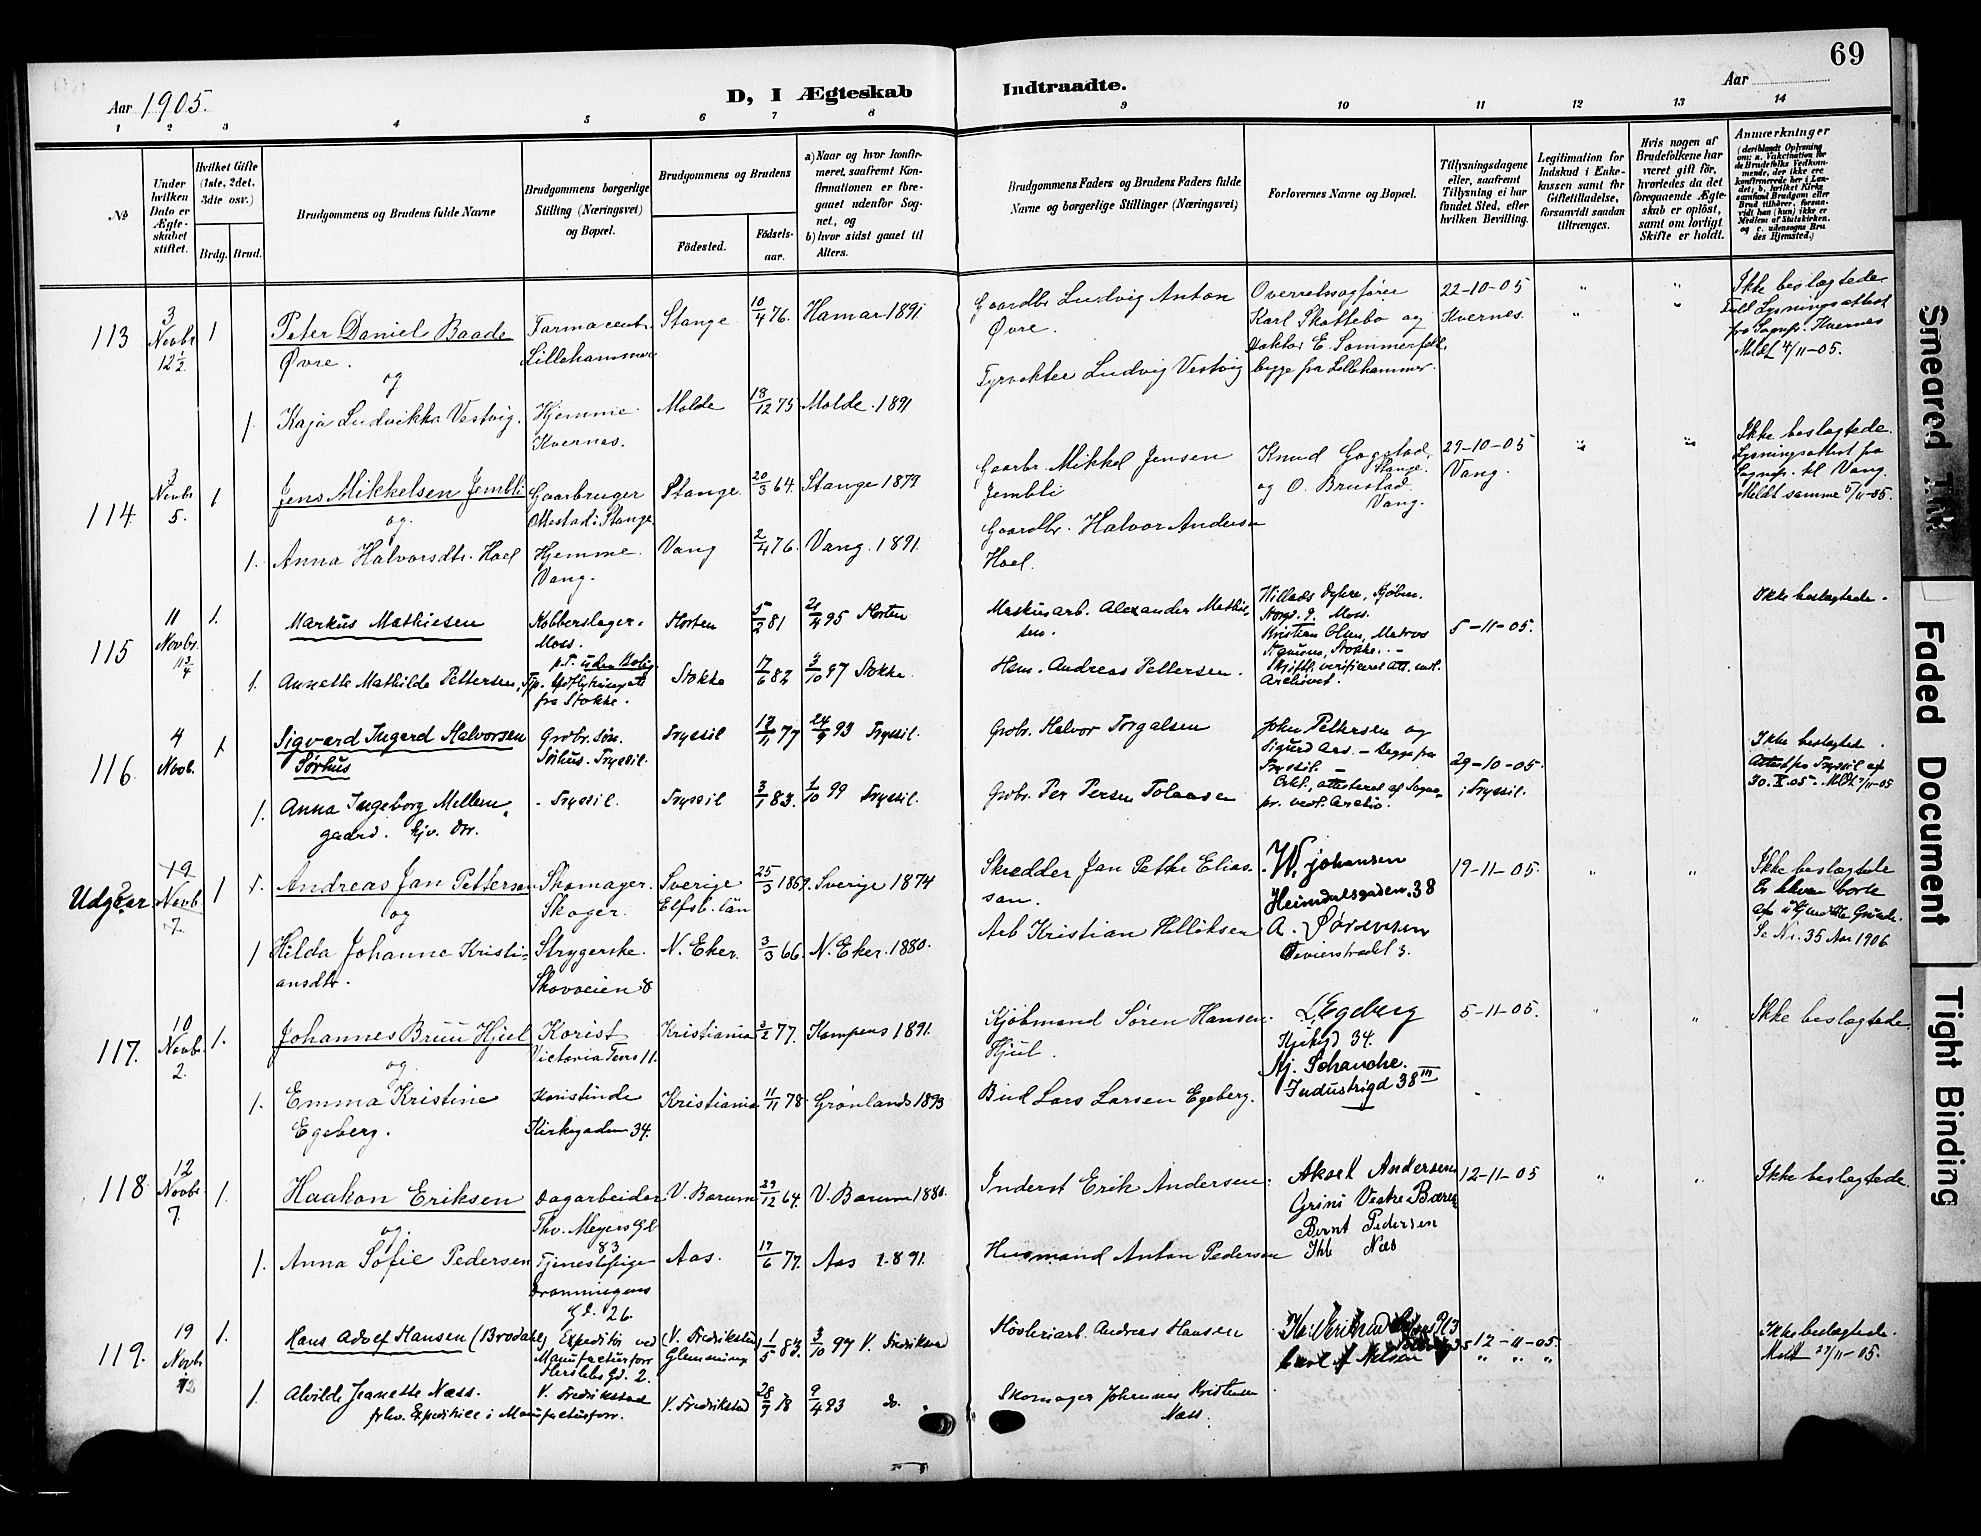 69
Aar 1905.
D, I Ægteskab Indtraadte.
Aar
1 2 3 4 5 6 7 8 9 10 11 12 13 14
No
Under hvilken Dato er Ægteskabet stiftet.
Hvilket Gifte (1ste, 2det, 3die osv.)
Brdg. Brud.
Brudgommens og Brudens fulde Navne
Brudgommens borgerlige Stilling (Næringsvei) og Bopæl.
Brudgommens og Brudens
Födested.
Födsels-aar.
a) Naar og hvor konfirmeret, saafremt Konfirmationen er foregaaet udenfor Sognet, og
b) hvor sidst gaaet til Alters.
Brudgommens Faders og Brudens Faders fulde Navne og borgerlige Stillinger (Næringsvei)
Forlovernes Navne og Bopæl.
Tillysningsdagene eller, saafremt Tillysning ei har fundet Sted, efter hvilken Bevilling.
Legitimation for Indskud i Enkekassen samt for Giftetilladelse, forsaavidt saadan tiltrænges.
Hvis nogen af Brudefolkene har været gift för, hvorledes da det foregaaende Ægteskab er oplöst, samt om lovligt Skifte er holdt.
Anmærkninger
113 3 Novbr 12½ 1 Peter Daniel Baade Øvre. Farmaceut, Lillehammer Stange 10/4 76. Hamar 1891 Gaardbr Ludvig Anton Øvre. Overretssagfører Karl Skottebo og Doktor E. Sommerfelt, begge fra Lillehammer. 22-10-05 Kvernes. Ikke beslægtede. Lysningsattest fra Sognepr. Kvernes Meldt 4/11-05.
og
1. Kaja Ludvikka Vestvig. Hjemme. Kvernes. Molde 18/12 75 Molde. 1891 Fyrvokter Ludvig Vestvig
114. 3 Novbr 5. 1 Jens Mikkelsen Jembli Gaarbruger Stange. Stange. 20/3 64. Stange 1879 Gaarbr. Mikkel Jensen Jembli Knud Gogstad, Stange. og O. Brustad Vang. 29-10-05 Vang. Ikke beslegtede. Lysningsattest fra Sognep. til Vang. Meldt samme 5/11-05.
og
1. Anna Halvorsdtr. Hoel Hjemme. Vang. Vang 2/4 76. Vang. 1891. Gaardbr. Halvor Andersen Hoel.
115 11 Novbr. 11¾ 1. Markus Mathiesen Kobberslager. Moss. Horten 5/2 81 21/4 95 Horten Maskinarb. Alexander Mathiesen. Kristian Olsen, Matros 5-11-05. Ikke beslægtede.
1. Annette Mathilde Pettersen, fra Stokke. Stokke 17/6 82 3/10 97 Stokke. Hsm. Andreas Pettersen.
116. 4 Novb. 1 Sigvard Ingard Halvorsen Sørhus Grdbr. søn. Sørhus. Trysil. Trysil 17/11 77 24/9 93 Trysil. Grdbr. Halvor Torgalsen John Pettersen og Sigurd Ars. – begge fra Trysil. 29-10-05. i Trysil. Ikke beslegtede. Attest fra Trysil af 30. X. 05.
1. Anna Ingeborg Mellemgaard. Trysil. Trysil 3/1 83. 1/10 99 Trysil. Grdbr. Per Persen Tolaasen
Udgaar 19 Novb. 7. 1 Andreas Jan Petterson Skomager. Skoger. Sverige Elfsb. Län 25/3 1859. Sverige 1874 Skrædder Jan Petter Eliasson. W. Johansen Heimdalsgaden. 38 19-11-05. Ikke beslægtede Er bleven borte af ukjendte Grunde. Se Nr. 35 Aar 1906
og
1 Hilda Johanne Kristiansdtr. Strygerske. Skovveien 8 N. Eker. 3/3 66. N. Eker. 1880. Arb Kristian Hellüksen A. Sørensen
117. 10 Novbr. 2. 1. Johannes Bruu Hjul Korist Victoria Terr 11. Kristiania 3/2 77. Kampens 1891. Kjöbmand Søren Hansen Hjul. L. Egeberg Kirkgd 34. Nj. Schanche. Industrigd 38 III 5-11-05. Ikke beslægtede.
og
1. Emma Kristine Egeberg. Koristinde Kirkegaden 34. Kristiania 11/11 78. Grønlands 1893 Bud Lars Larsen Egeberg.
118 12 Novbr 7. 1. Haakon Eriksen Dagarbeider Thv. Meyers Gd 83 V. Bærum 29/12 64. V. Bærum 1880. Inderst Erik Andersen. Aksel Andersen Grini Vestre Bærum Bernt Pedersen Næs 12-11-05 Ikke beslægtede.
og
1. Anna Sofie Pedersen Tjenestepige Dronningens Gd. 26. Aas. 17/6 77. Aas 1891. Husmand Anton Pedersen
119. 19 Novbr 12 1. Hans Adolf Hansen (Brodahl) Expeditør ved Manufacturforr Herslebs Gd. 2. (V. Fredrikstad) Glemminge 1/5 83. 3/10 97 V. Fredrikstad Høvleriarb. Andreas Hansen Carl A Nelson 12-11-05. Ikke beslægtede. Meldt 27/11-05.
1. Alvilde Jeanette Næss. frhv. Expeditrice i Manufacturforr. V. Fredrikstad V. Fredrikstad 28/9 78 9/4 93 do. Skomager Johannes Kristensen Næss.
Smeared Ink
Faded Document
Tight Binding